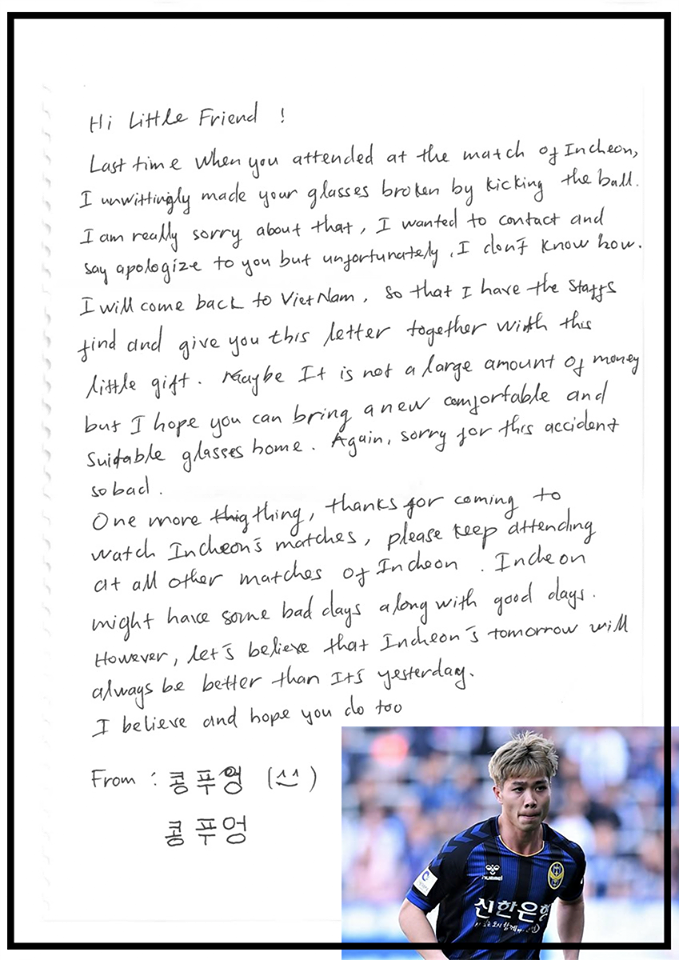 Hi Little Friend !
Last time when you attended at the match of Incheon,
I unwittingly made your glasses broken by kicking the ball.
I am really sorry about that, I wanted to contact and
say apologize to you but unfortunately, I don't know how.
I will come back to VietNam, so that I have the staffs
find and give you this letter together with this
little gift. Maybe It is not a large amount of money
but I hope you can bring a new comfortable and
suitable glasses home. Again, sorry for this accident
so bad.
One more thig thing, thanks for coming to
watch Incheon's matches, please keep attending
at all other matches of Incheon. Incheon
might have some bad days along with good days.
However, let's believe that Incheon's tomorrow will
always be better than Its yesterday.
I believe and hope you do too
From : 콩푸엉 (^^)
콩푸엉
hummel
신한은행